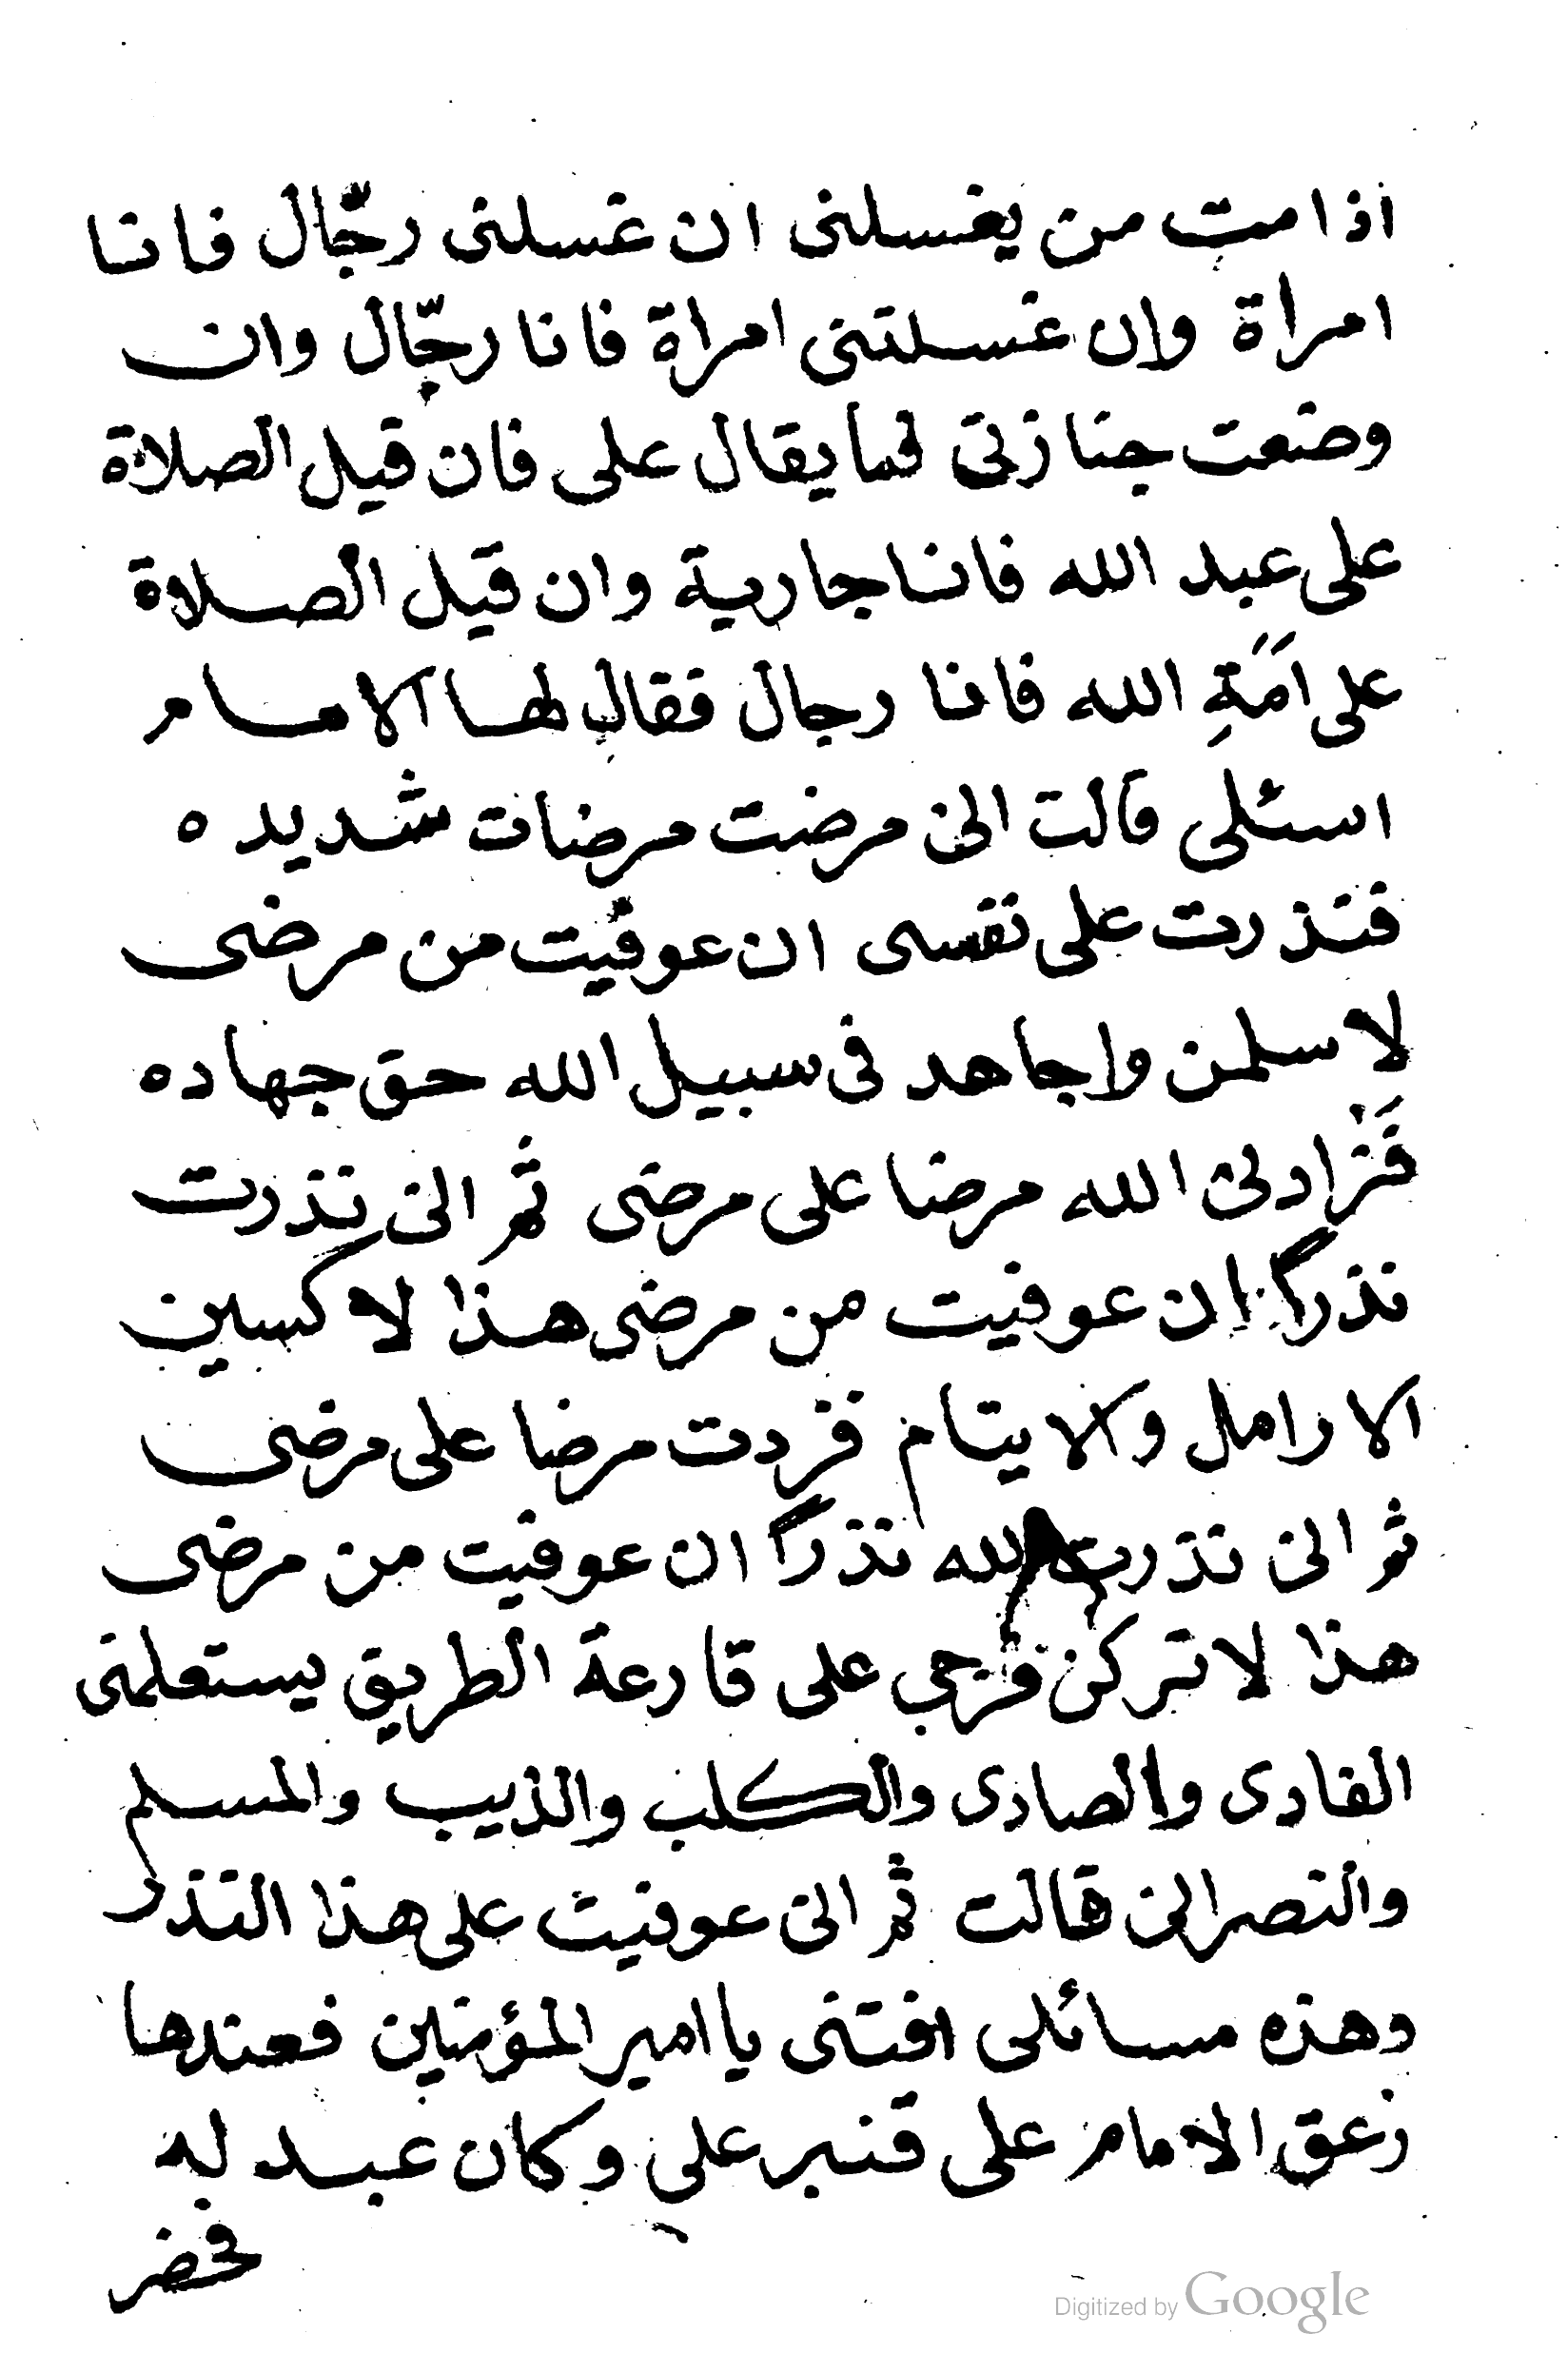 اذا مت من يغسلنى ان غسلنى رجّال فانا
امراة وان غسلتنى امراة فانا رجّال وان
وضعت جنازتى فما يقال على فان قيل الصلاة
على عبد الله فانا جارية وان قيل الصلاة
على اَمَةِ الله فانا رجال فقال لها الامام
اسئلى قالت انى مرضت مرضات شديده
فنذرت على نفسى ان عوفيت من مرضى
لاسلمن واجاهد فى سبيل الله حق جهاده
فَزادنى الله مرضا على مرضى ثم انى نذرت
نذراً ان عوفيت من مرضى هذا لاكسين
الارامل والايتام فزدت مرضا على مرضى
ثم انى نذرت لله نذراً ان عوفيت من مرضى
هذا لاتركن فرجى على قارعة الطريق يستعلمنى
الغادى والصادى والكلب والذيب والمسلم
والنصرانى قالت ثم انى عوفيت على هذا النذر
وهذه مسائلى افتنى يا امير المؤمنين فعندها
زعق الامام على قنبر على وكان عبد له
فحضر
Digitized by Google